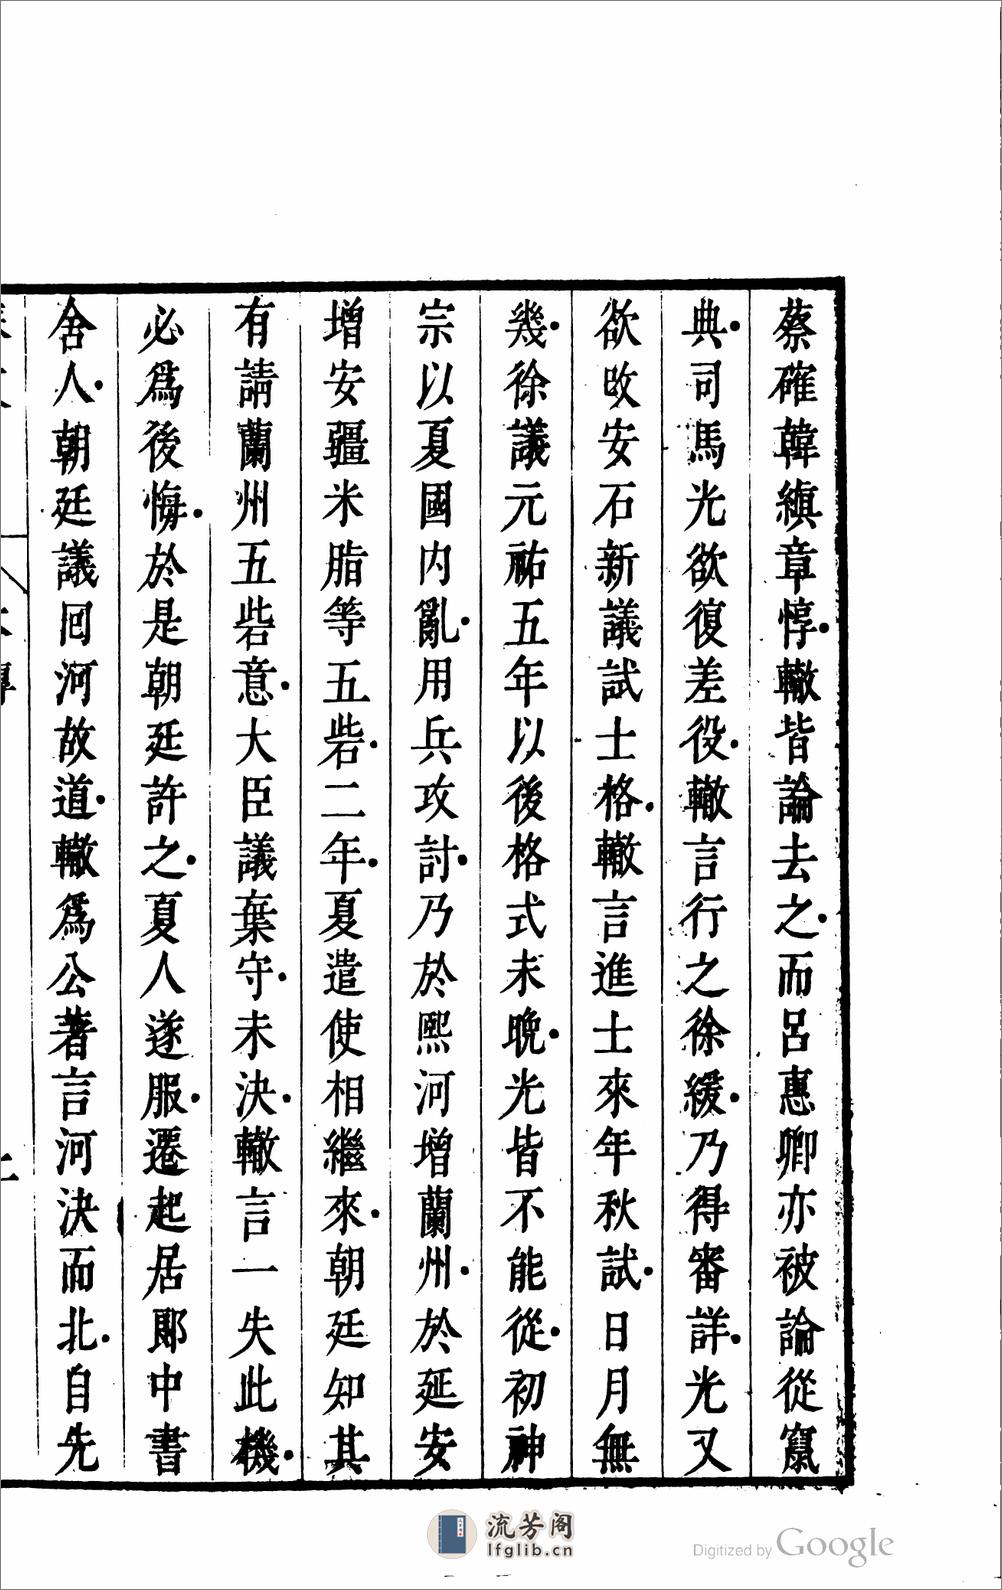 蔡確韓縝章惇轍皆論去之而呂惠卿亦被論從竄
典司馬光欲復差役轍言行之徐緩乃得審詳光又
欲改安石新議試士格轍言進士來年秋試日月無
幾徐議元祐五年以後格式未晩光皆不能從初神
宗以夏國內亂用兵攻討乃於熙河增蘭州於延安
增安疆米脂等五砦二年夏遣使相繼來朝廷知其
有請蘭州五砦意大臣議棄守未決轍言一失此機
必爲後悔於是朝廷許之夏人遂服遷起居郞中書
舍人朝廷議回河故道轍爲公著言河決而北自先
流芳阁
lfglib.cn
Digitized by Google